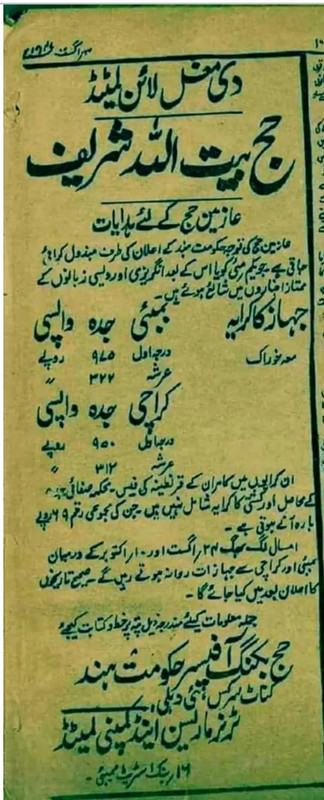 دی مغل لائن لمیٹڈ
حج بیت اللہ شریف
عازمین حج کے لئے ہدایات
عازمین حج کی توجہ حکومت ہند کے اعلان کی طرف مبذول کرائی
جاتی ہے جو یکم مئی کو یا اس کے بعد انگریزی اور دیسی زبانوں کے
ممتاز اخباروں میں شائع ہوئے ہیں۔
جہاز کا کرایہ بمبئی جدہ واپسی
معہ خوراک درجہ اول ۹۷۵ روپے
عرشہ ۳۲۲ "
کراچی جدہ واپسی
درجہ اول ۹۵۰ روپے
عرشہ ۳۱۲ "
ان کرایوں میں کامران کے قرنطینہ کی فیس۔ محکمہ صفائی
کے محاصل اور کشتی کا کرایہ شامل نہیں ہیں۔ جن کی مجموعی رقم ۶۹ روپے
بارہ آنے ہوتی ہے۔
امسال لگ بھگ ۲۴ اگست اور ۱۰ اکتوبر کے درمیان
بمبئی اور کراچی سے جہازات روانہ ہوتے رہیں گے۔ صحیح تاریخوں
کا اعلان بعد میں کیا جائے گا۔
جملہ معلومات کیلئے مندرجہ ذیل پتہ پر خط و کتابت کیجئے
حج بکنگ آفیسر حکومت ہند
کناٹ سرکس، نئی دہلی،
ٹرنر ماریسن اینڈ کمپنی لمیٹڈ
۱۶ بنک اسٹریٹ بمبئی۔